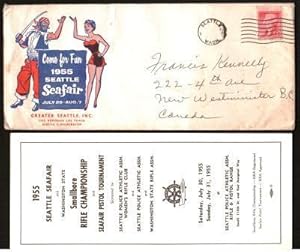 Come for Fun
1955
SEATTLE
Seafair
JULY 29-AUG. 7
GREATER SEATTLE, INC.
SEATTLE
WASH.
Francis Kennelly
222-4th ave
New Westminster B.C.
Canada
1955
SEATTLE SEAFAIR
and
WASHINGTON STATE
Smallbore
RIFLE CHAMPIONSHIP
and
SEAFAIR PISTOL TOURNAMENT
Sponsored by
SEATTLE POLICE ATHLETIC ASSN.
WASHINGTON STATE RIFLE ASSN.
Saturday, July 30, 1955
Sunday, July 31, 1955
at
SEATTLE POLICE ATHLETIC ASSN.
RIFLE & PISTOL RANGE